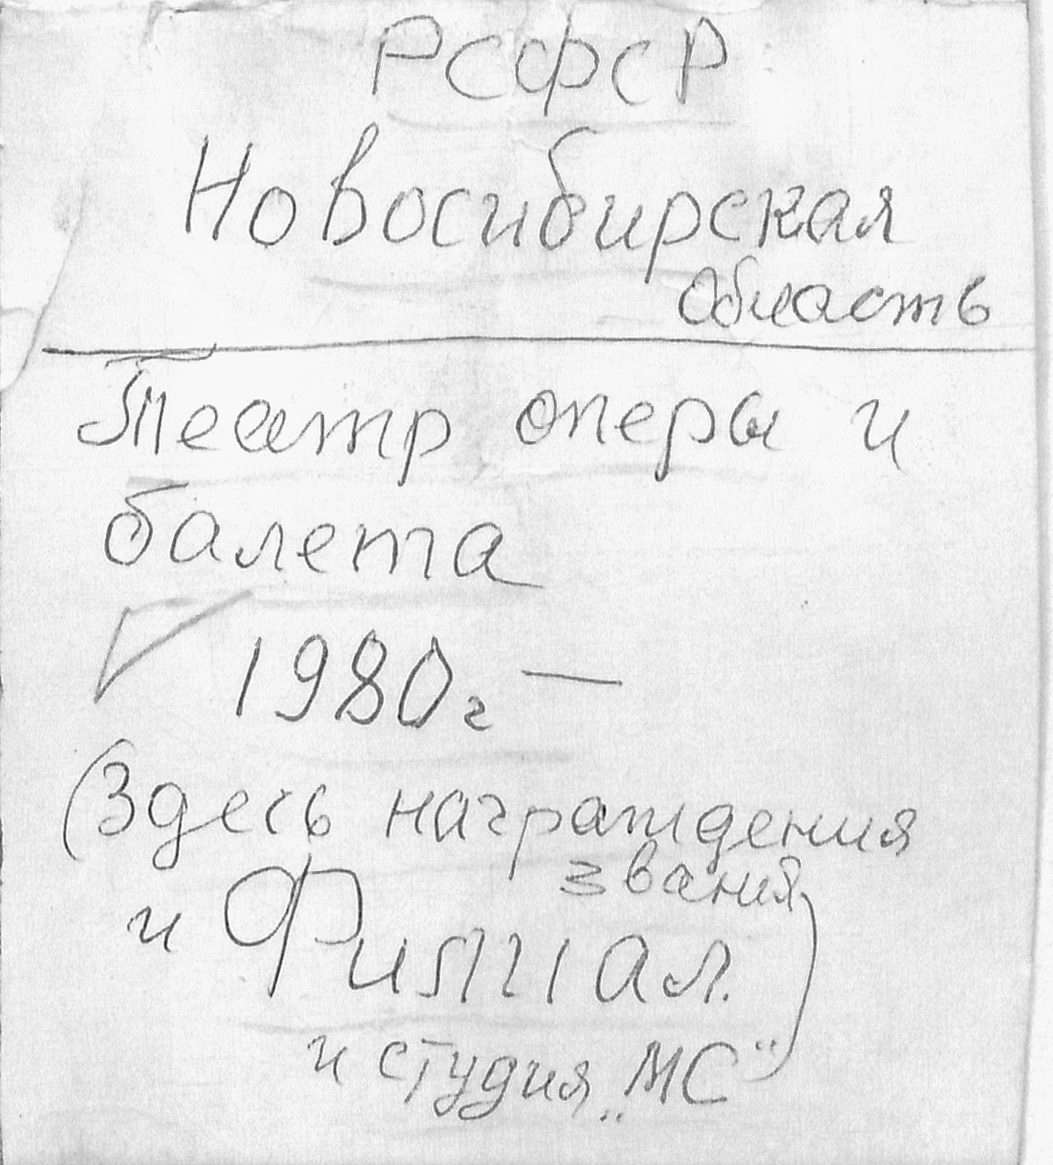 РСФСР
Новосибирская
область
Театр оперы и
балета
1980г —
(Здесь награждения
звания
и Филиал.
и студия „МС“)